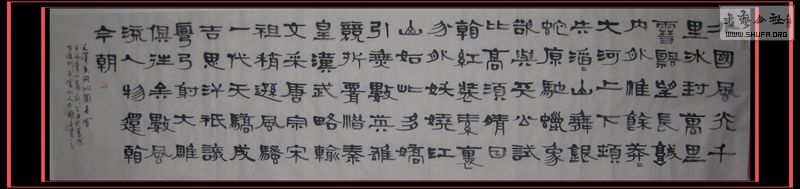 北國風光千
里冰封萬里
雪飄望長城
內外惟餘莽
大河上下頓
失滔山舞銀
蛇原馳蠟象
欲與天公試
比高須晴日
看紅裝素裹
分外妖嬈江
山如此多嬌
引無數英雄
競折腰惜秦
皇漢武略輸
文采唐宗宋
祖稍遜風騷
一代天驕成
吉思汗祇識
彎弓射大雕
俱往矣數風
流人物還看
今朝
毛澤東詞沁園春雪
書法公社
WWW.SHUFA.ORG